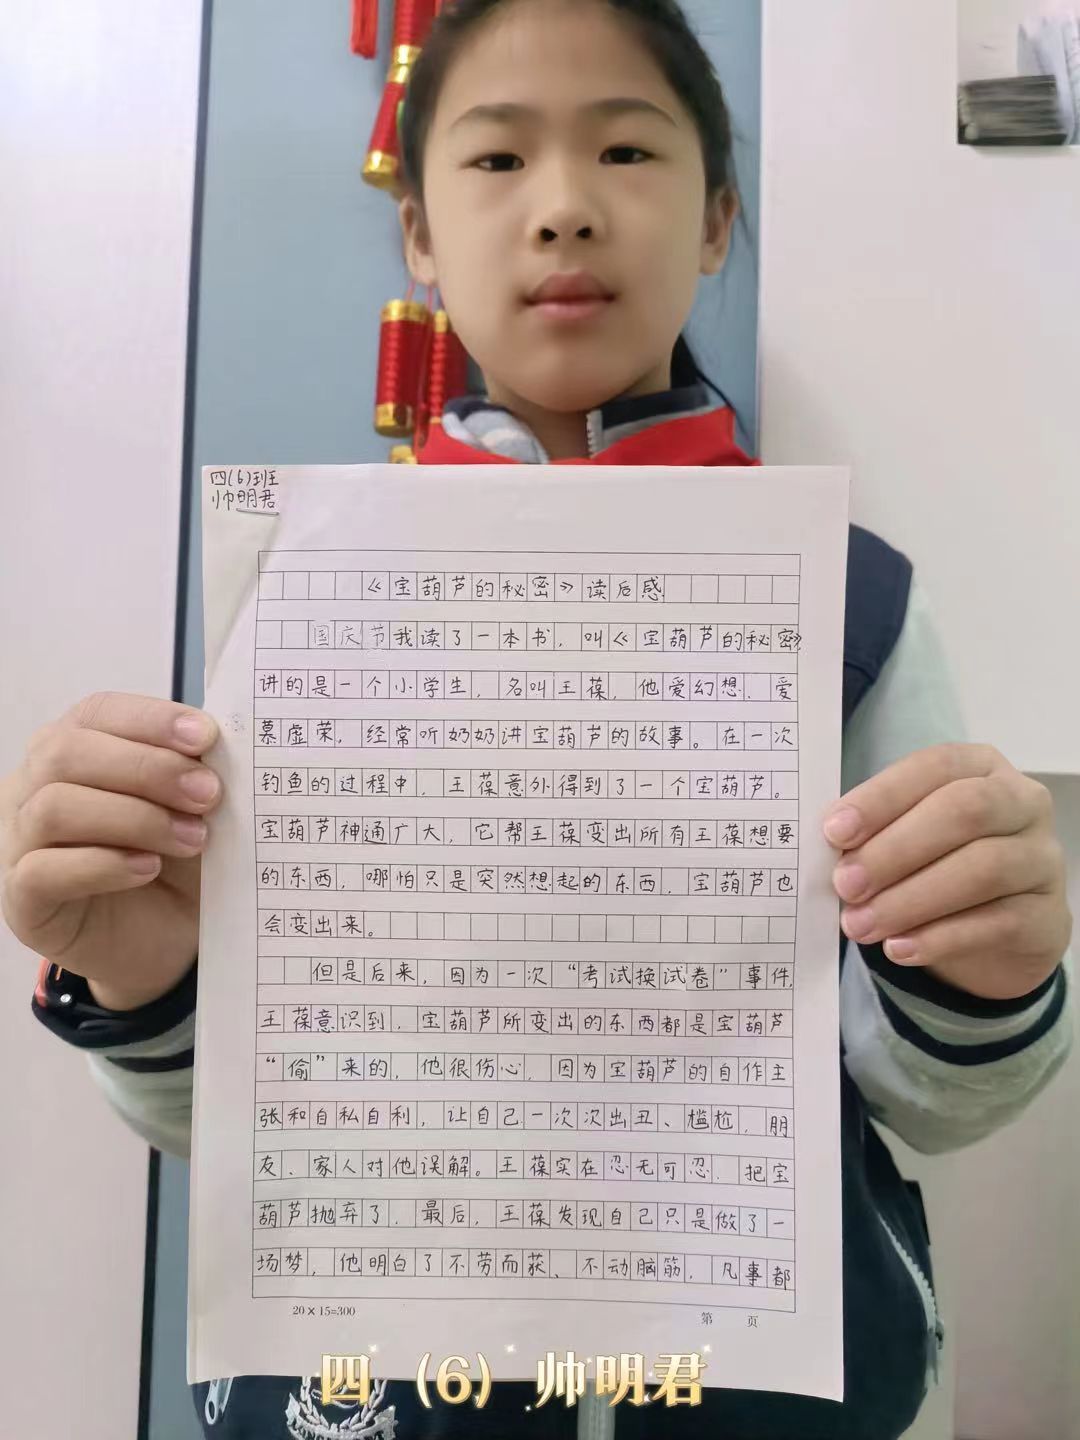 四(6)班
帅明君
《宝葫芦的秘密》读后感
国庆节我读了一本书，叫《宝葫芦的秘密》
讲的是一个小学生，名叫王葆，他爱幻想、爱
慕虚荣，经常听奶奶讲宝葫芦的故事。在一次
钓鱼的过程中，王葆意外得到了一个宝葫芦。
宝葫芦神通广大，它帮王葆变出所有王葆想要
的东西，哪怕只是突然想起的东西，宝葫芦也
会变出来。
但是后来，因为一次“考试换试卷”事件，
王葆意识到，宝葫芦所变出的东西都是宝葫芦
“偷”来的，他很伤心，因为宝葫芦的自作主
张和自私自利，让自己一次次出丑、尴尬，朋
友、家人对他误解。王葆实在忍无可忍，把宝
葫芦抛弃了，最后，王葆发现自己只是做了一
场梦，他明白了不劳而获、不动脑筋，凡事都
20×15=300
第 页
四（6）帅明君